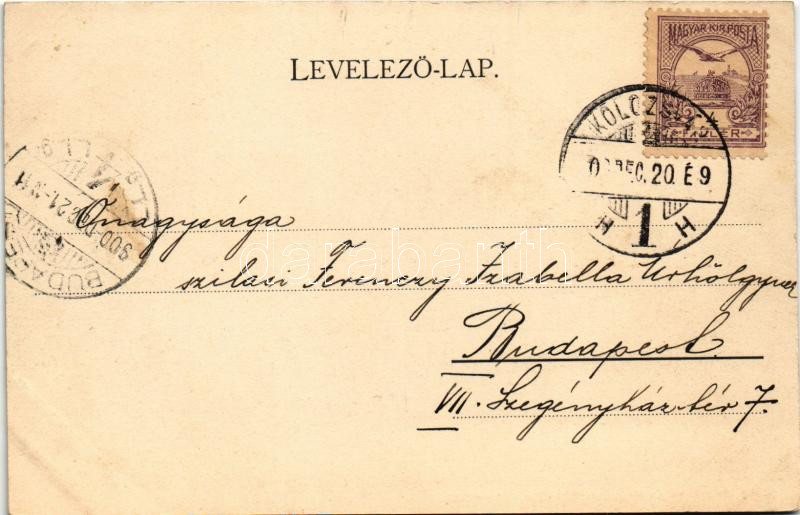 LEVELEZŐ-LAP.
MAGYAR KIR. POSTA
FILLÉR
KOLOZSVÁR
DEC. 20. É9
H 1 H
BUDAPEST
900 DEC 21
Őnagysága
szilasi Ferenczy Izabella Urhölgynek
Budapest.
VII. Szegényház-tér 7.
darabanth